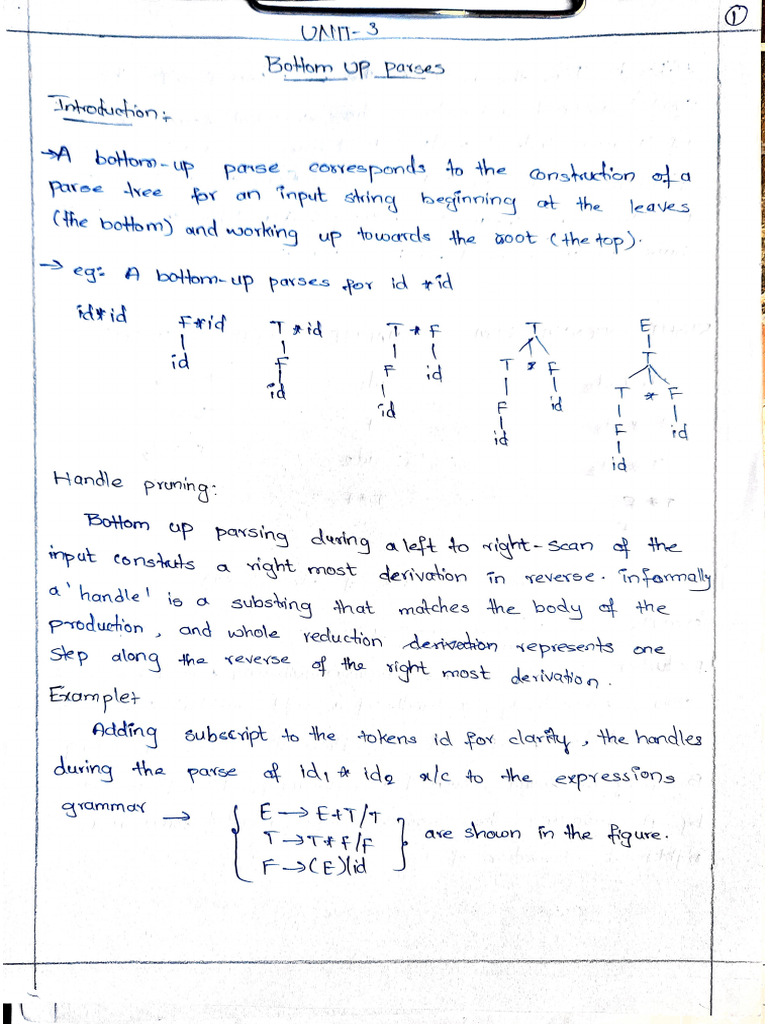 ①
UNIT-3
Bottom up parses
Introduction:-
→A bottom-up parse corresponds to the construction of a
parse tree for an input string beginning at the leaves
(the bottom) and working up towards the root (the top).
→ eg: A bottom-up parses for id * id
id*id F*id T*id T*F T E
id F F id T * F T
id id F id T * F
id F id
id
Handle pruning:
Bottom up parsing during a left to right-scan of the
input constuts a right most derivation in reverse. informally
a 'handle' is a substing that matches the body of the
production, and whole reduction derivation represents one
step along the reverse of the right most derivation.
Example:-
Adding subscript to the tokens id for clarity, the handles
during the parse of id₁ * id₂ to the expressions
grammar → { E → E+T/T
T → T*F/F } are shown in the figure.
F → (E)|id